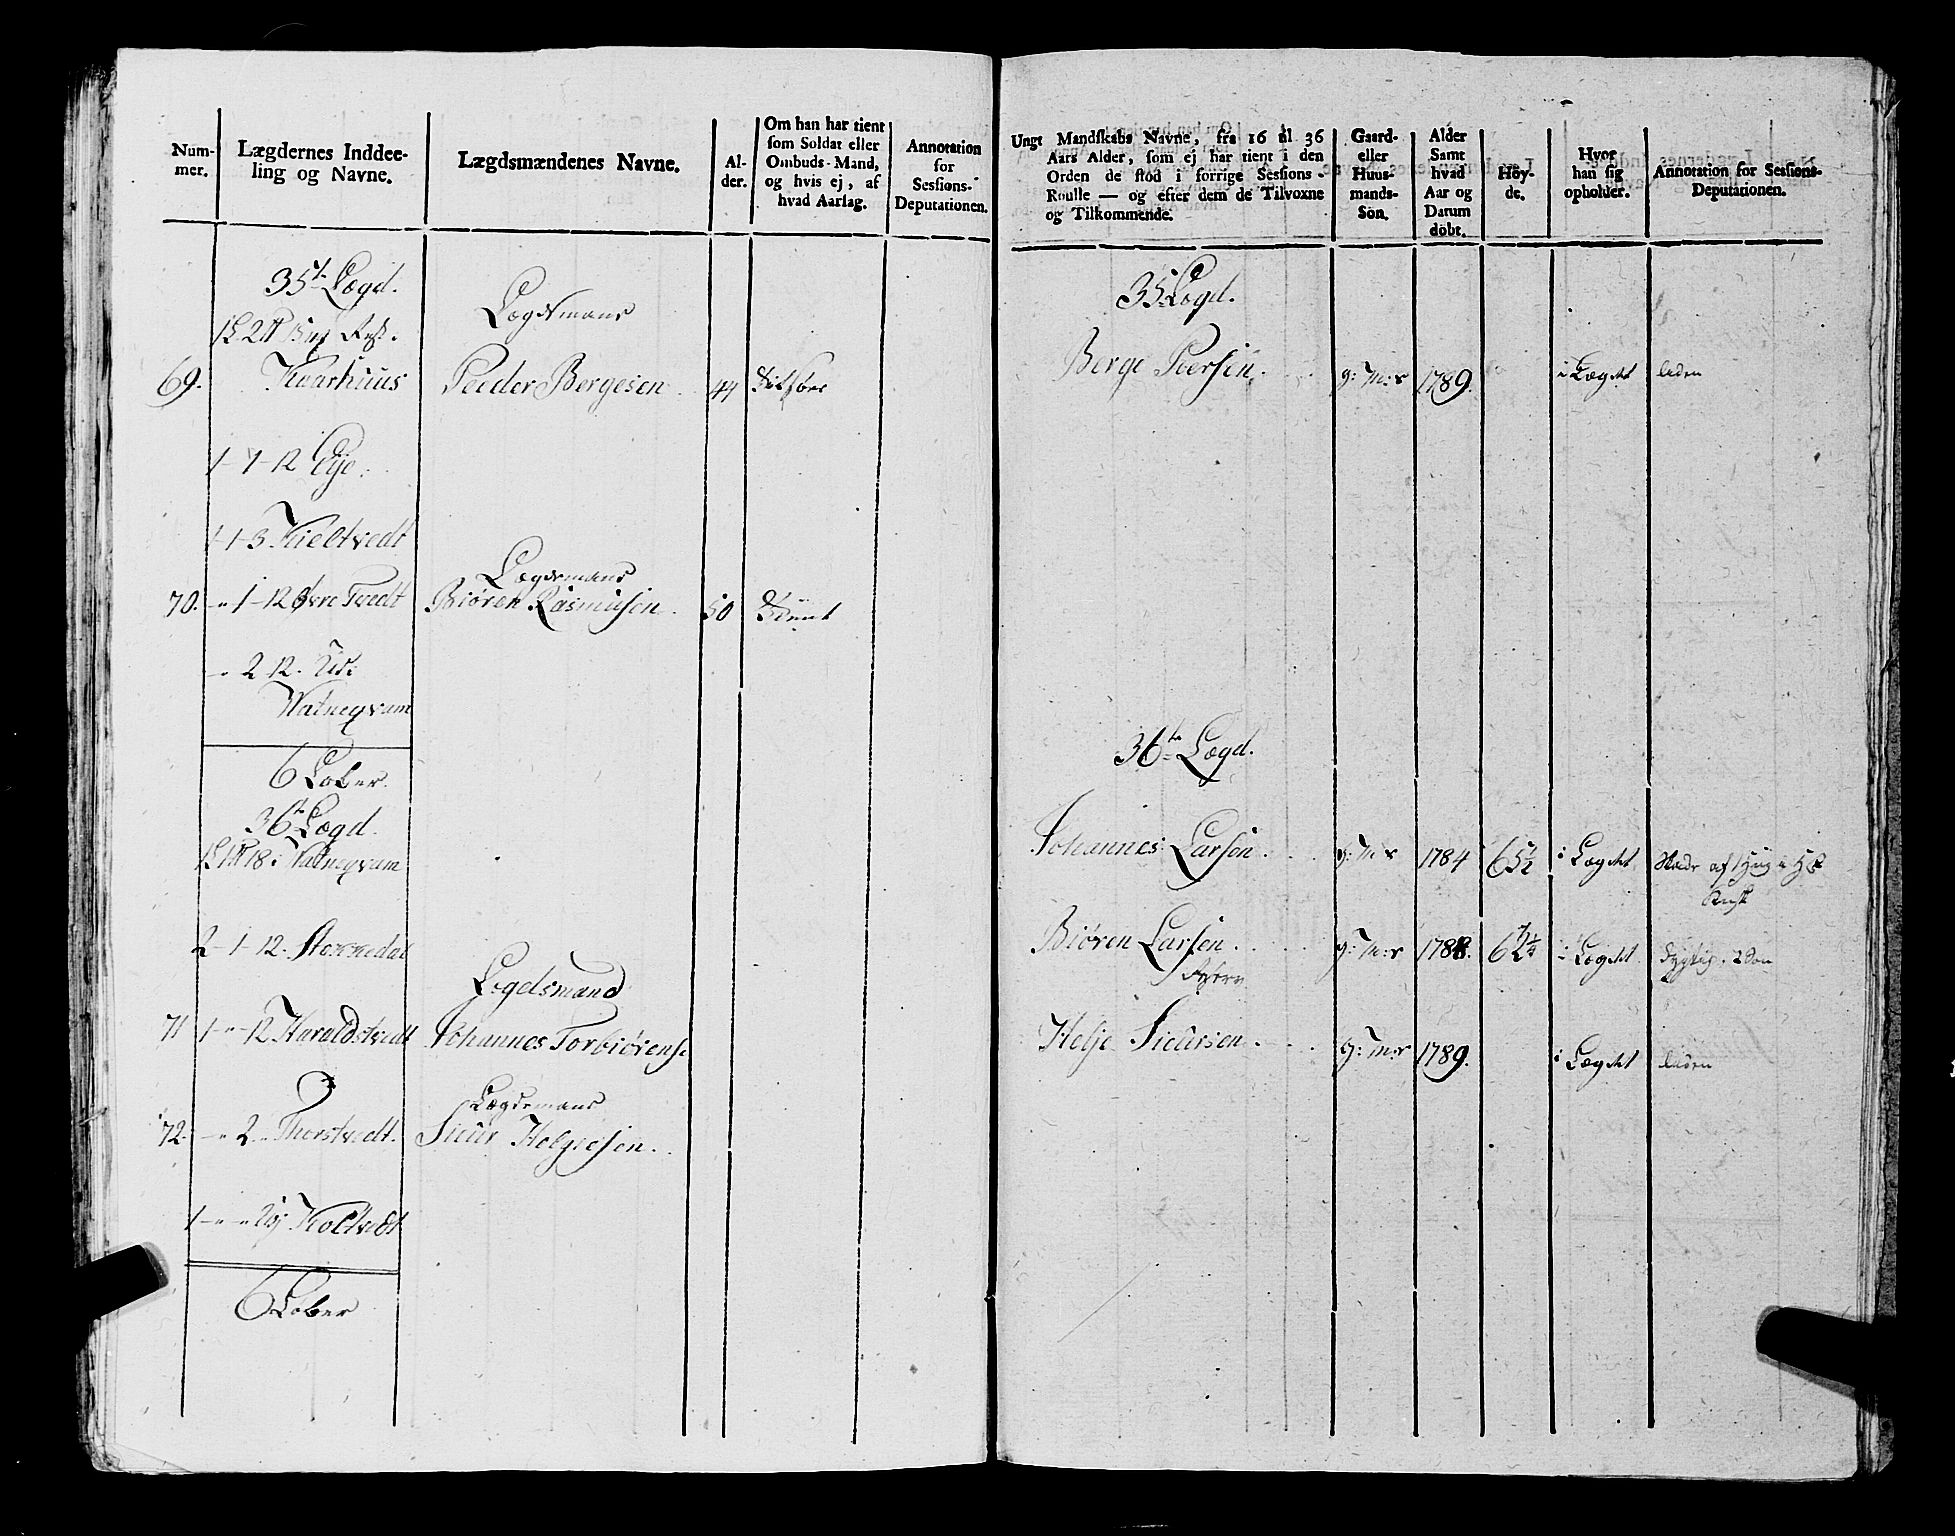 Num-
mer.
Lægdernes Inddee-
ling og Navne.
Lægdsmændenes Navne.
Al-
der.
Om han har tient
som Soldat eller
Ombuds-Mand,
og hvis ej, af
hvad Aarsag.
Annotation
for
Sessions-
Deputationen.
35te Lægd.
Lægdsmand
69. Kaarhuus Peeder Bergesen 44
1-1-12 Eije.
1-1-3 Kieltvedt
Lægdsmand
70. -"-1-12 Øvre Tvedt Biøren Rasmusen. 50
-"- 2-12. Udi
Watneqvam
6 Løber.
36te Lægd.
18 i Watneqvam
2-1-12. Stokkedal
Lægdsmand
71 1-"-12 Haraldstvedt Johannes Torbiørense
Lægdsmand
72. -"-2-" Thorstvedt. Siur Helgiesen.
1-"-" Koltvedt
6 Løber
Ungt Mandskabs Navne, fra 16 til 36
Aars Alder, som ej har tient i den
Orden de stod i forrige Sessions-
Roulle — og efter dem de Tilvoxne
og Tilkommende.
Gaard-
eller
Huus-
mands-
Søn.
Alder
Samt
hvad
Aar og
Datum
døbt.
Høy-
de.
Hvor
han sig
opholder.
Annotation for Sessions-
Deputationen.
35 Lægd.
Berge Peersen. g: M:s 1789. i Lægdet liden
36te Lægd.
Johannes Larsen. g: M:s 1784 i Lægdet
Biøren Larsen. g: M:s 1788. i Lægdet
Helje Siursen. g: M:s 1789. i Lægdet liden